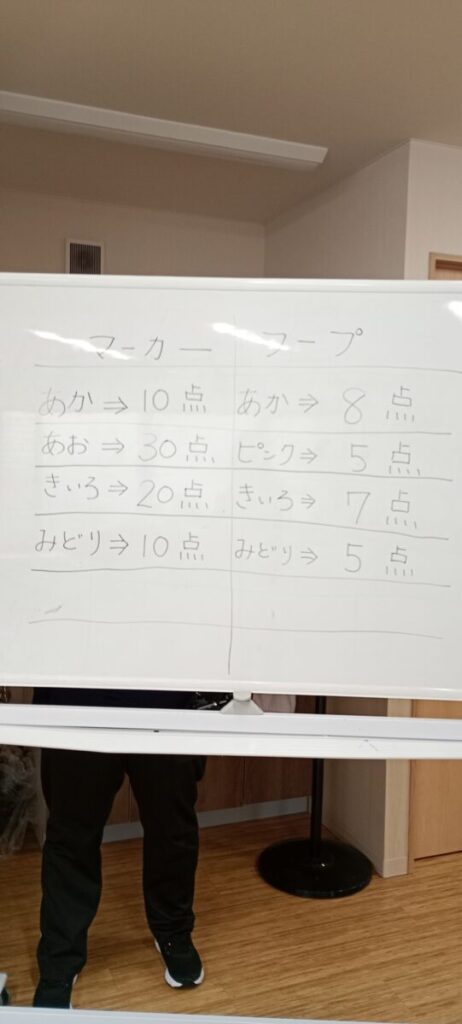 マーカー フープ
あか⇒10点 あか⇒ 8 点
あお⇒30点 ピンク⇒ 5 点
きいろ⇒20点 きいろ⇒ 7 点
みどり⇒10点 みどり⇒ 5 点